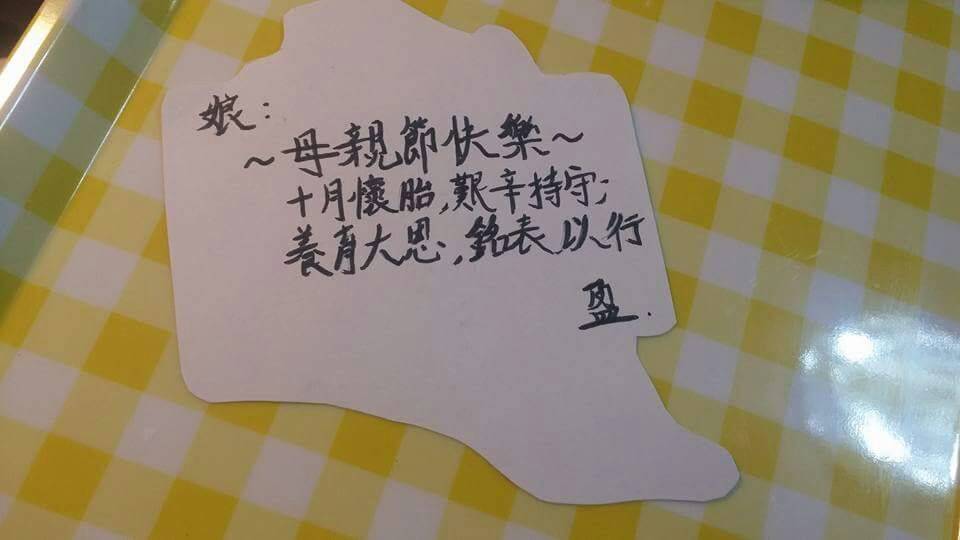 娘：
～母親節快樂～
十月懷胎,艱辛持守;
養育大恩,銘表以行
盈.